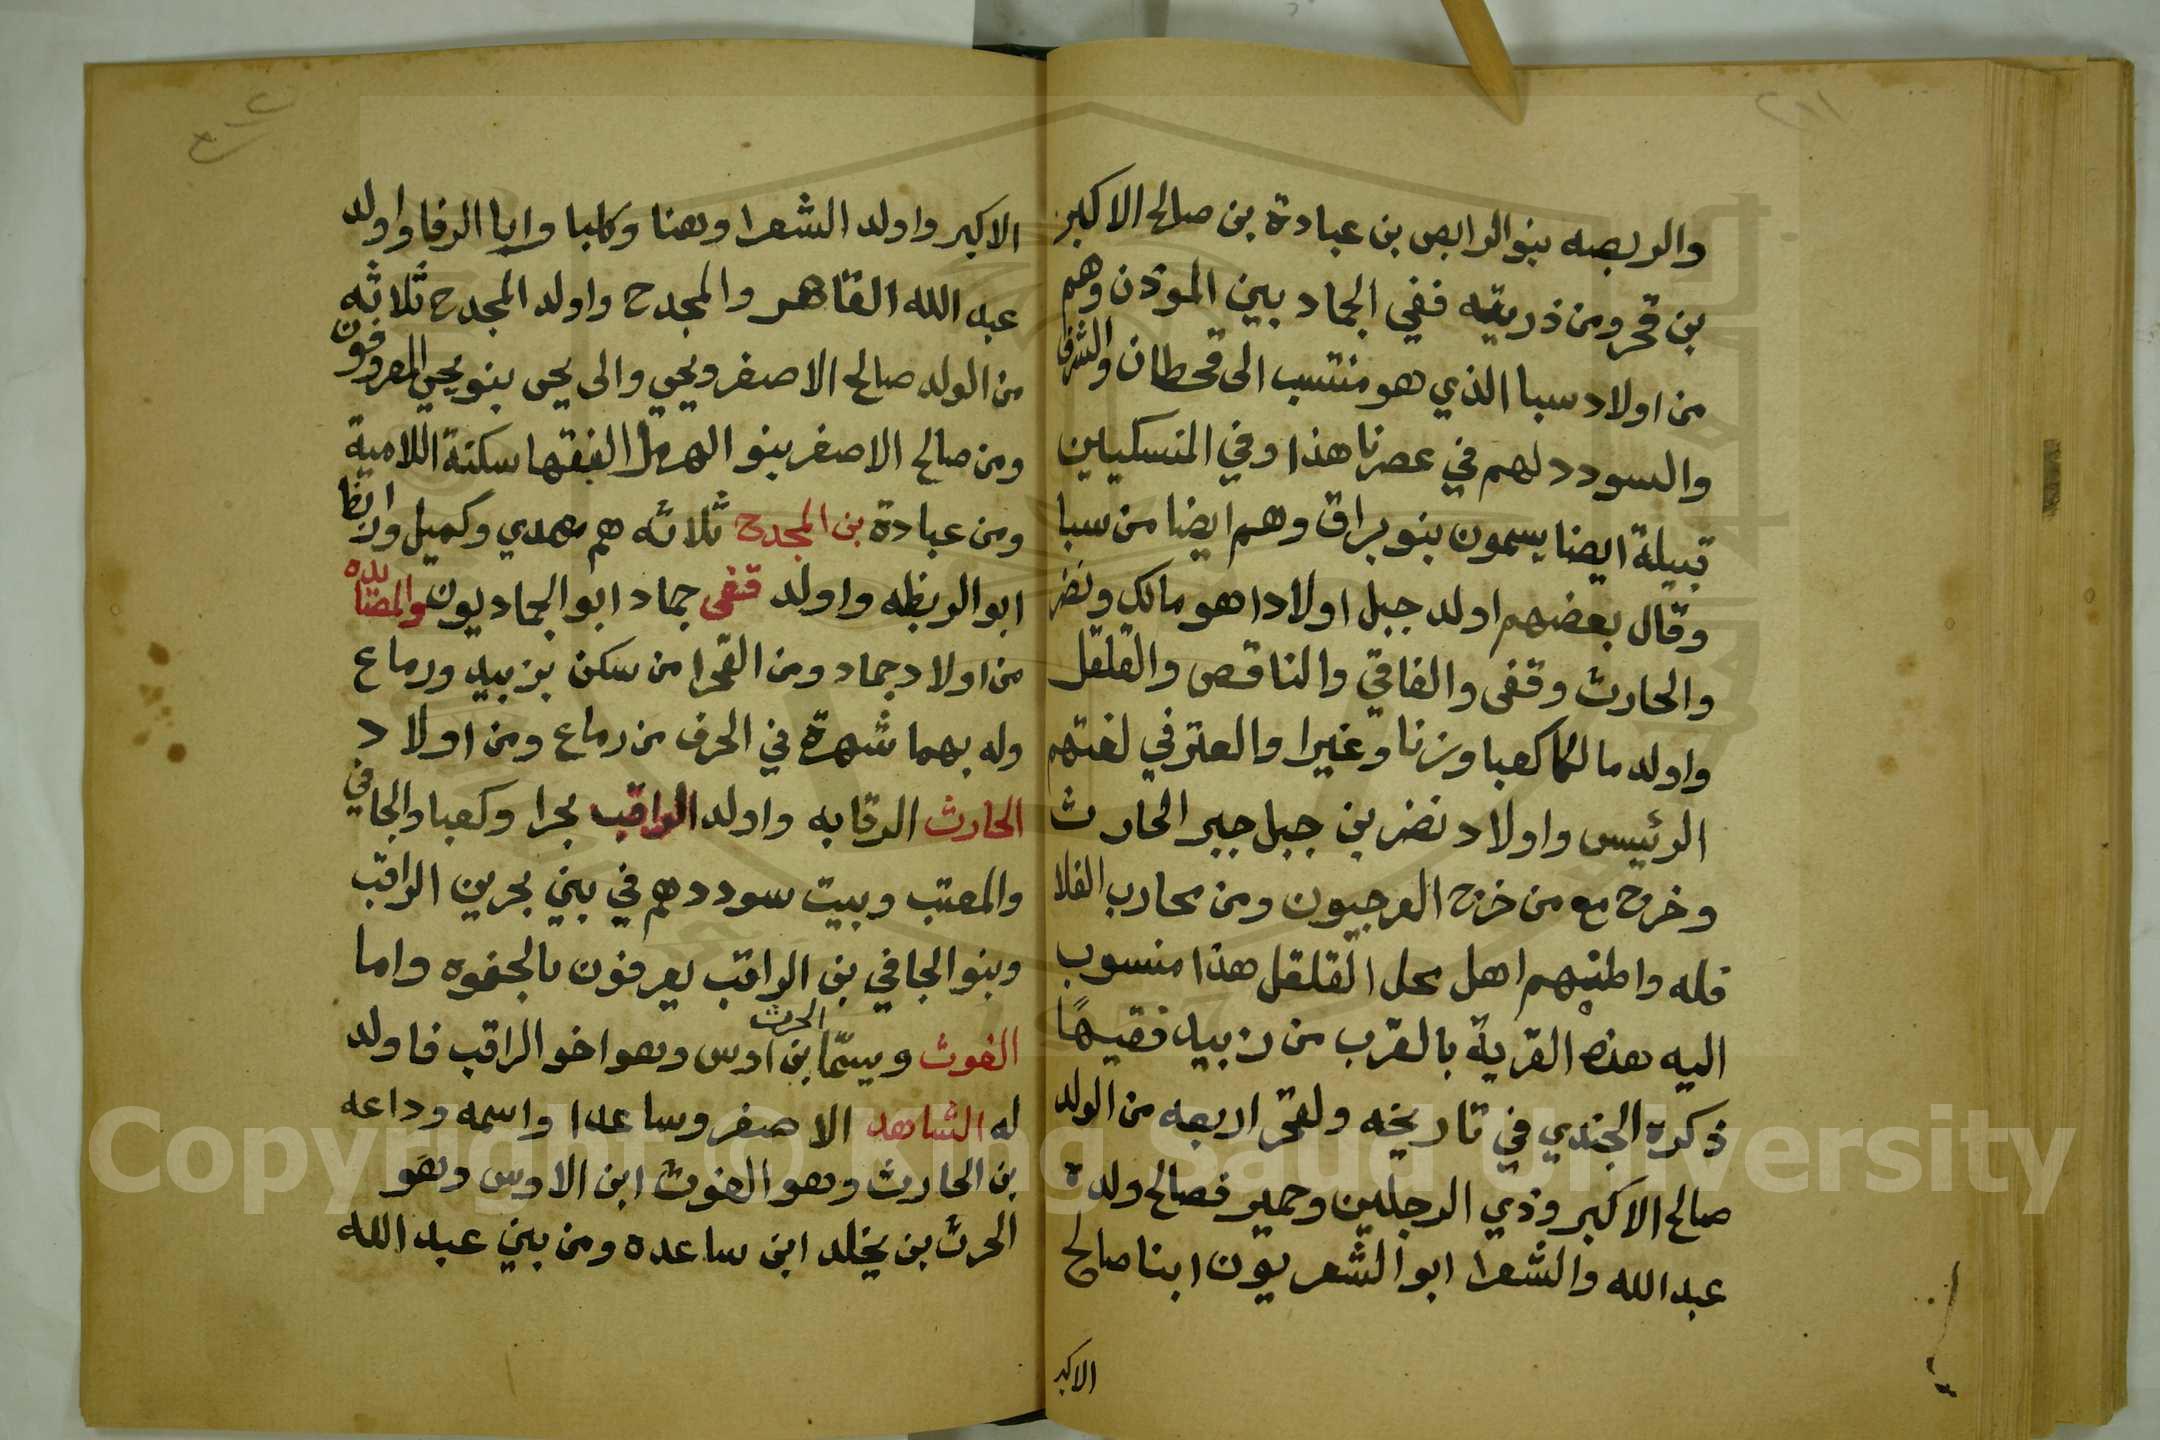 ٢١١
والربصه بنوالرابص بن عبادة بن صالح الاكبر
بن قحر ومن ذريته ففي الجماد بيني الموذن وهم
من اولاد سبا الذي هو منتسب الى قحطان والشرف
والسودد لهم في عصرنا هذا وفي المنسكيين
قبيلة ايضا يسمون بنو براق وهم ايضا من سبا
وقال بعضهم اولد جبل اولادا هو مالك ونضر
والحارث وقفى والفاقي والناقص والقلقل
واولد مالكا كعبا وزنا وغيرا والعتر في لغتهم
الرئيس واولاد نضر بن جبل جبر الحارث
وخرج مع من خرج العرجيون ومن محارب الفلا
فله واطنهم اهل محل القلقل هذا منسوب
اليه هذه القرية بالقرب من زبيد فقيهًا
ذكره الجندي في تاريخه ولقحر اربعه من الولد
صالح الاكبر وذي الرجلين وحمير فصالح ولدة
عبد الله والشعرا ابو الشعريون ابنا صالح
الاكبر
الاكبر واولد الشعرا وهنا وكلبا وابا الرفا واولد
عبد الله القاهر والمجدح واولد المجدح ثلاثه
من الولد صالح الاصغر ويحيي والى يحيى بنو يحيي المعروفون
ومن صالح الاصغر بنو الهرمل الفقها سكنة اللامية
ومن عبادة بن المجدح ثلاثه هم مهدي وكميل وارنظا
ابو الربظه واولد قفى جماد ابو الجماديون والمضالده
من اولاد جماد ومن القحرا من سكن بزبيد ورماع
وله بهما شهرة في الحرف من رماع ومن اولاد
الحارث الرقابه واولد الراقب بحرا وكعبا والجافي
والمعتب وبيت سوددهم في بيني بحر بن الراقب
وبنو الجافي بن الراقب يعرفون بالجفوه واما
الغوث ويسمّا الحرث بن اوس وهو اخو الراقب فاولد
له الشاهد الاصغر وساعدا واسمه وداعه
بن الحارث وهو الغوث ابن الاوس وهو
الحرث بن يخلد ابن ساعده ومن بيني عبد الله
Copyright © King Saud University